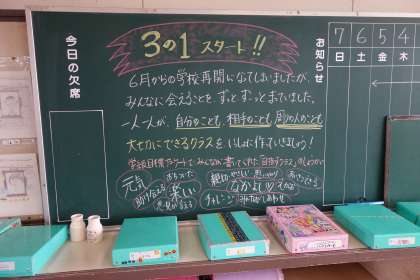 今日の欠席
3の1 スタート!!
6月からの学校再開になってしまいましたが
みんなに会えることを ずっと ずーっと まっていました。
一人一人が、自分のことも、相手のことも、周りの人のことも
大切にできるクラスを いっしょに作っていきましょう!
元気
助け合える
楽しい
親切
やさしい
なかよし
チャレンジ
しあわせ
お知らせ
7 6 5 4
日 土 金 木